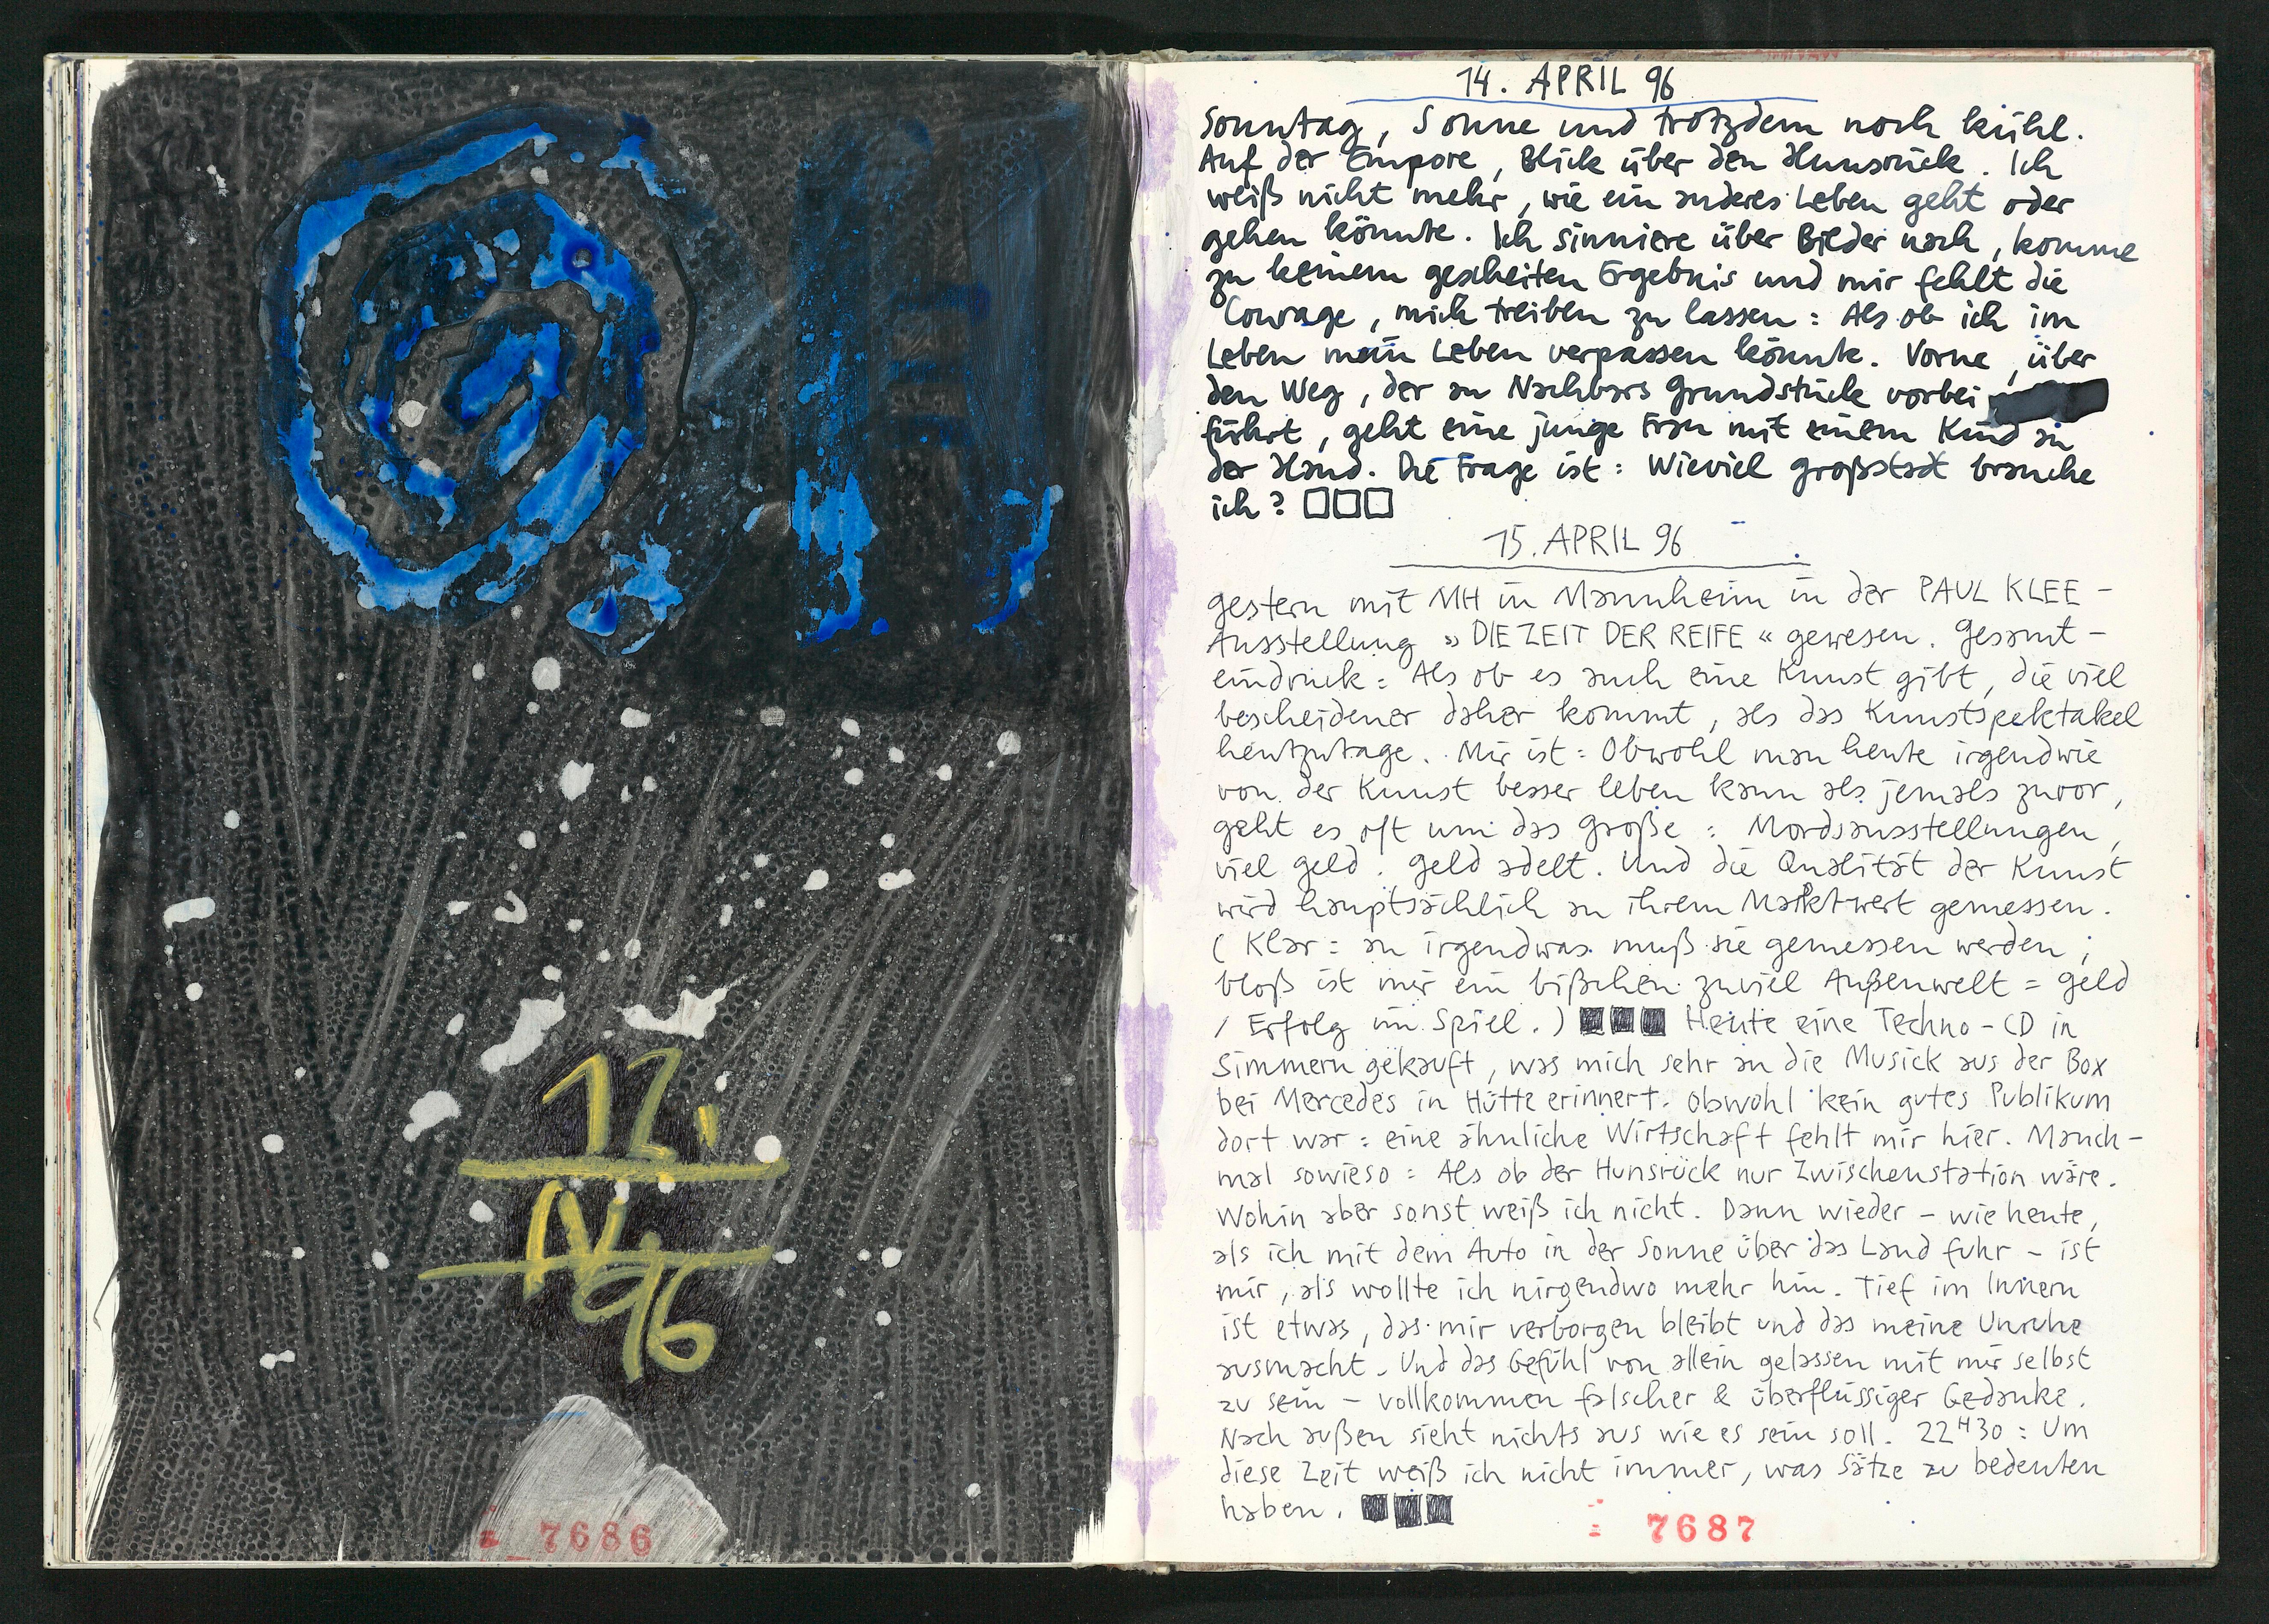 12.
IV.
96
7686
14. APRIL 96
Sonntag, Sonne und trotzdem noch kühl.
Auf der Empore, Blick über den Hunsrück. Ich
weiß nicht mehr, wie ein anderes Leben geht oder
gehen könnte. Ich sinniere über Bilder nach, komme
zu keinem gescheiten Ergebnis und mir fehlt die
Courage, mich treiben zu lassen: Als ob ich im
Leben mein Leben verpassen könnte. Vorne, über
den Weg, der an Nachbars Grundstück vorbei
führt, geht eine junge Frau mit einem Kind an
der Hand. Die Frage ist: Wieviel Großstadt brauche
ich?
15. APRIL 96
Gestern mit MH in Mannheim in der PAUL KLEE-
Ausstellung »DIE ZEIT DER REIFE« gewesen. Gesamt-
eindruck: Als ob es auch eine Kunst gibt, die viel
bescheidener daher kommt, als das Kunstspektakel
heutzutage. Mir ist: Obwohl man heute irgendwie
von der Kunst besser leben kann als jemals zuvor,
geht es oft um das Große: Mordsausstellungen,
viel Geld. Geld adelt. Und die Qualität der Kunst
wird hauptsächlich an ihrem Marktwert gemessen.
(Klar: an irgendwas muß sie gemessen werden;
bloß ist mir ein bißchen zuviel Außenwelt = Geld
/ Erfolg im Spiel.) Heute eine Techno-CD in
Simmern gekauft, was mich sehr an die Musick aus der Box
bei Mercedes in Hütte erinnert. Obwohl kein gutes Publikum
dort war: eine ähnliche Wirtschaft fehlt mir hier. Manch-
mal sowieso: Als ob der Hunsrück nur Zwischenstation wäre.
Wohin aber sonst weiß ich nicht. Dann wieder - wie heute,
als ich mit dem Auto in der Sonne über das Land fuhr - ist
mir, als wollte ich nirgendwo mehr hin. Tief im Innern
ist etwas, das mir verborgen bleibt und das meine Unruhe
ausmacht. Und das Gefühl von allein gelassen mit mir selbst
zu sein - vollkommen falscher & überflüssiger Gedanke.
Nach außen sieht nichts aus wie es sein soll. 22H30: Um
diese Zeit weiß ich nicht immer, was Sätze zu bedeuten
haben.
7687